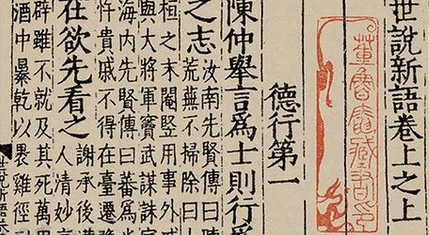 世說新語卷上之上
德行第一
陳仲舉言爲士則行爲
之志
汝南先賢傳曰陳
荒蕪不掃除曰
桓之末閹豎用事外戚
與大將軍竇武謀誅宦
海內先賢傳曰蕃爲尚
忤貴戚不得在臺遷豫
在欲先看之
謝承後漢
人清妙高
辟雖不就及其死萬
酒中暴乾以裹雞徑